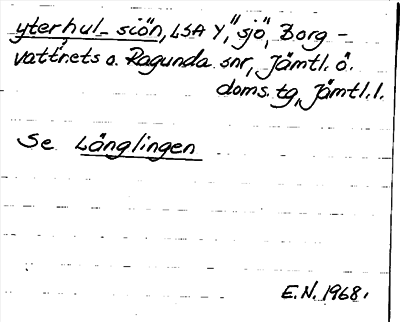 yterhul-siön, LSA Y, "sjö", Borg-
vattnets o. Ragunda snr, Jämtl. ö.
doms. tg, Jämtl. l.
Se Länglingen
E.N. 1968.